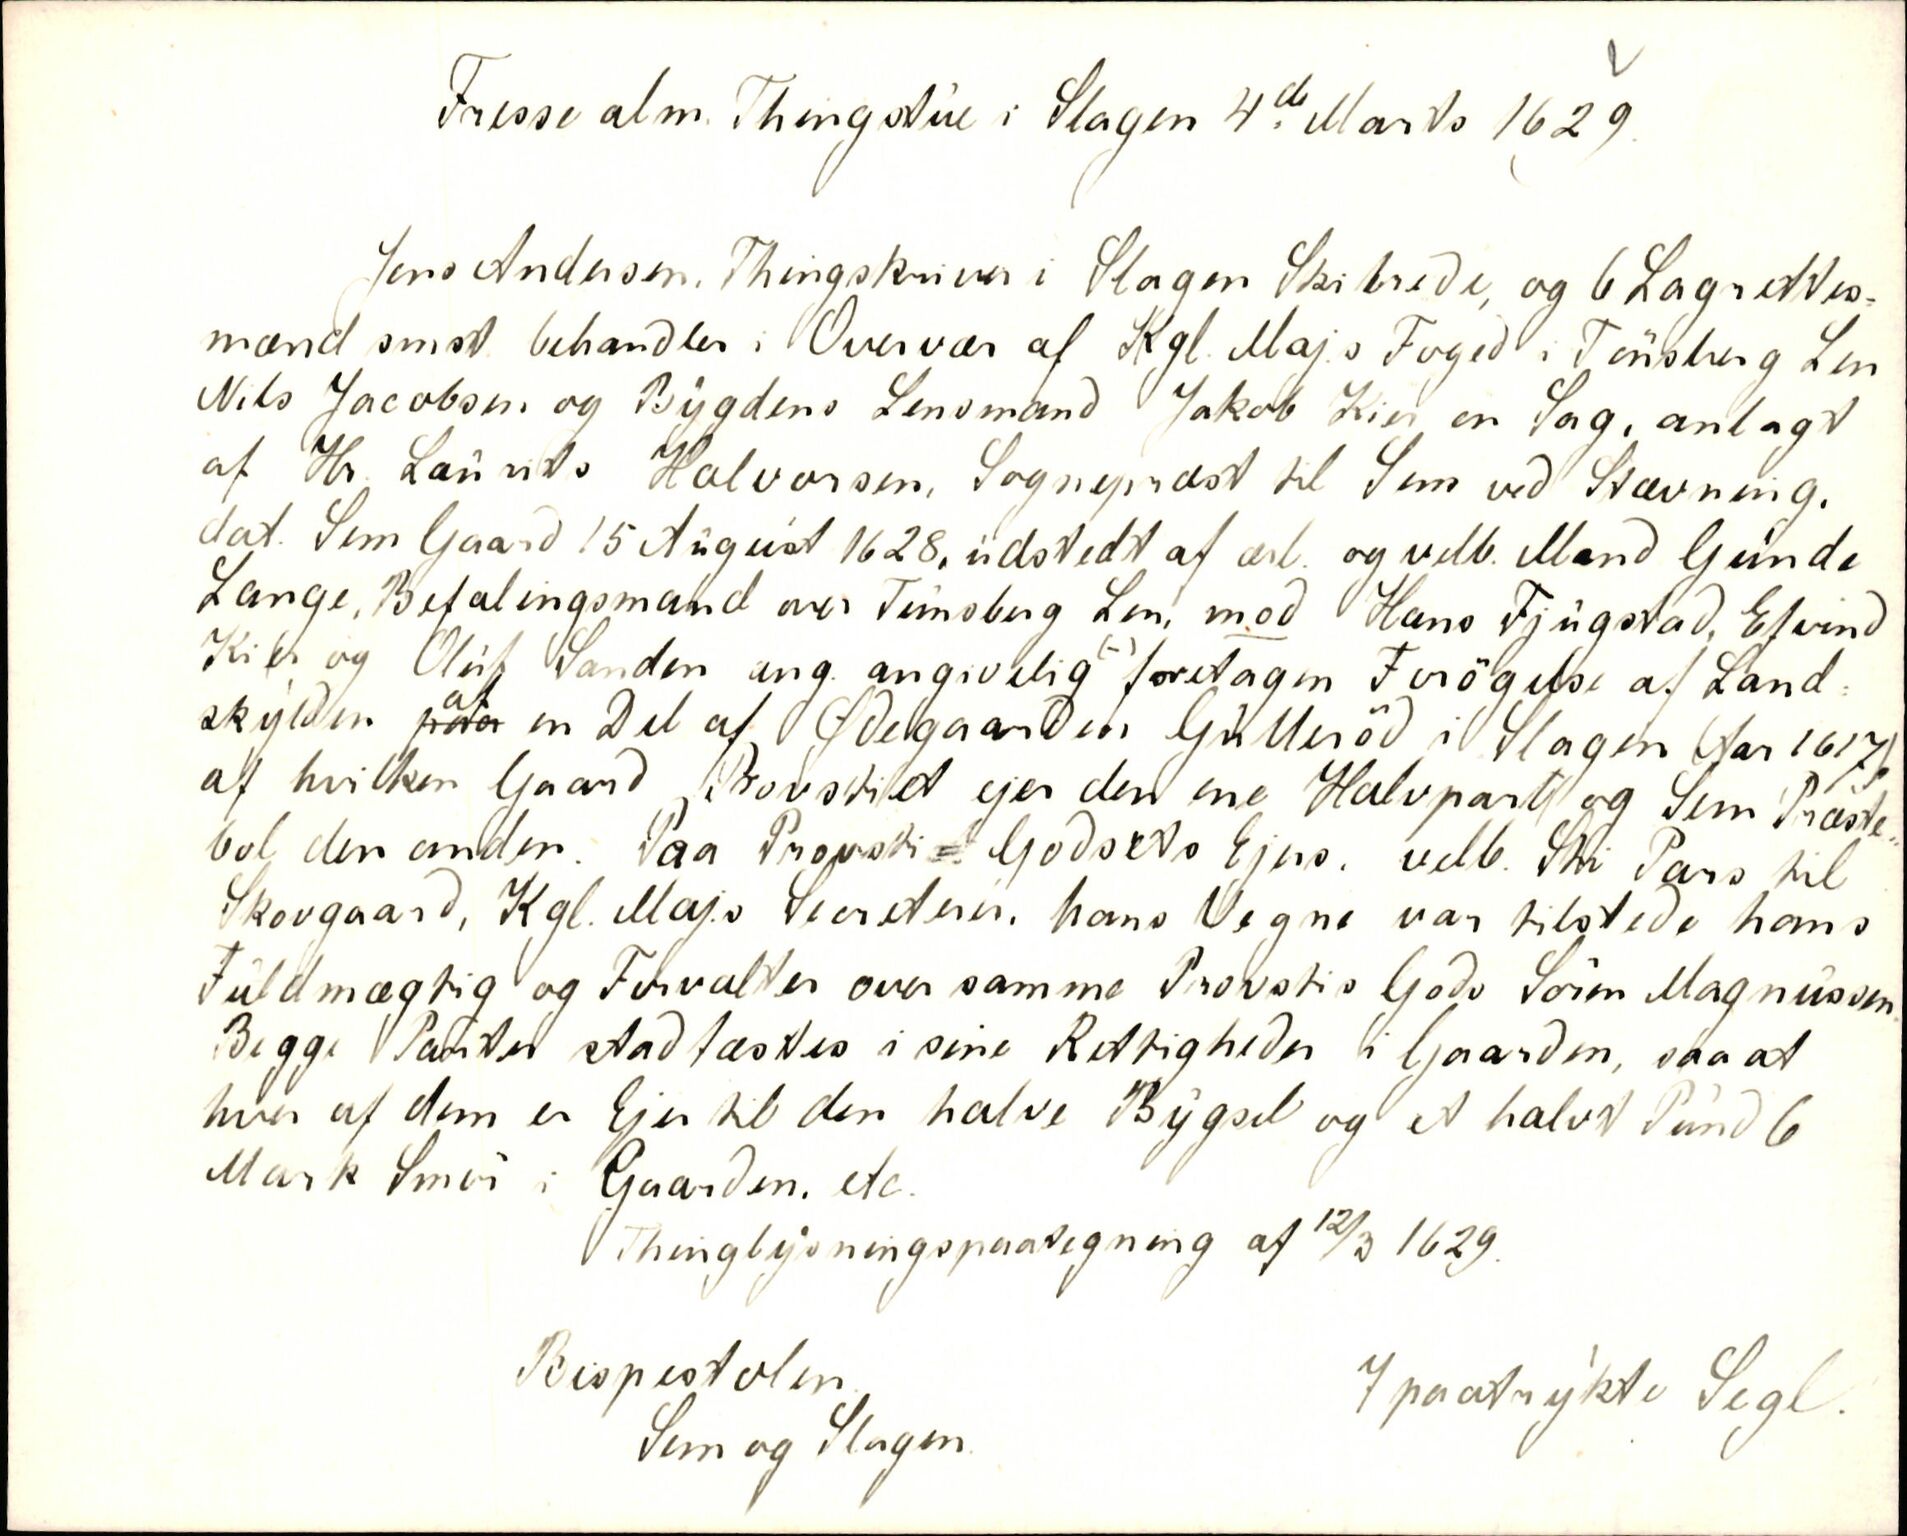 Fresse alm. Thingstue i Slagen 4de Marts 1629.
Jens Andersen, Thingskriver i Slagen Skibrede, og 6 Lagrettes-
mænd smst. behandler i Overvær af Kgl. Maj.s Foged i Tønsberg Len
Nils Jacobsen og Bygdens Lensmand Jakob Kier en Sag, anlagt
af Hr. Laurits Halvorsen, Sognepræst til Sem ved Stævning,
dat. Sem Gaard 15 August 1628, udstedt af ærl. og velb. Mand Gunde
Lange, Befalingsmand over Tunsberg Len, mod Hans Fjugstad, Efvind
Kier og Oluf Sanden ang. angivelig (-) foretagen Forögelse af Land-
skylden af en Del af Ødegaarden Gulleröd i Slagen (Aar 1617),
af hvilken Gaard Provstiet ejer den ene Halvpart og Sem Præste-
bol den anden. Paa Provsti Godsets Ejers, velb. Sti Pars til
Skovgaard, Kgl. Maj.s Secreterer, hans Vegne var tilstede hans
Fuldmægtig og Forvalter over samme Provstis Gods Sören Magnussen.
Begge Parter stadfæstes i sine Rettigheder i Gaarden, saa at
hver af dem er Ejer til den halve Bygsel og et halvt Pund 6
Mark Smör i Gaarden, etc.
Thinglysningspaategning af 12/3 1629.
Bispestolen
7 paatrykte Segl.
Sem og Slagen